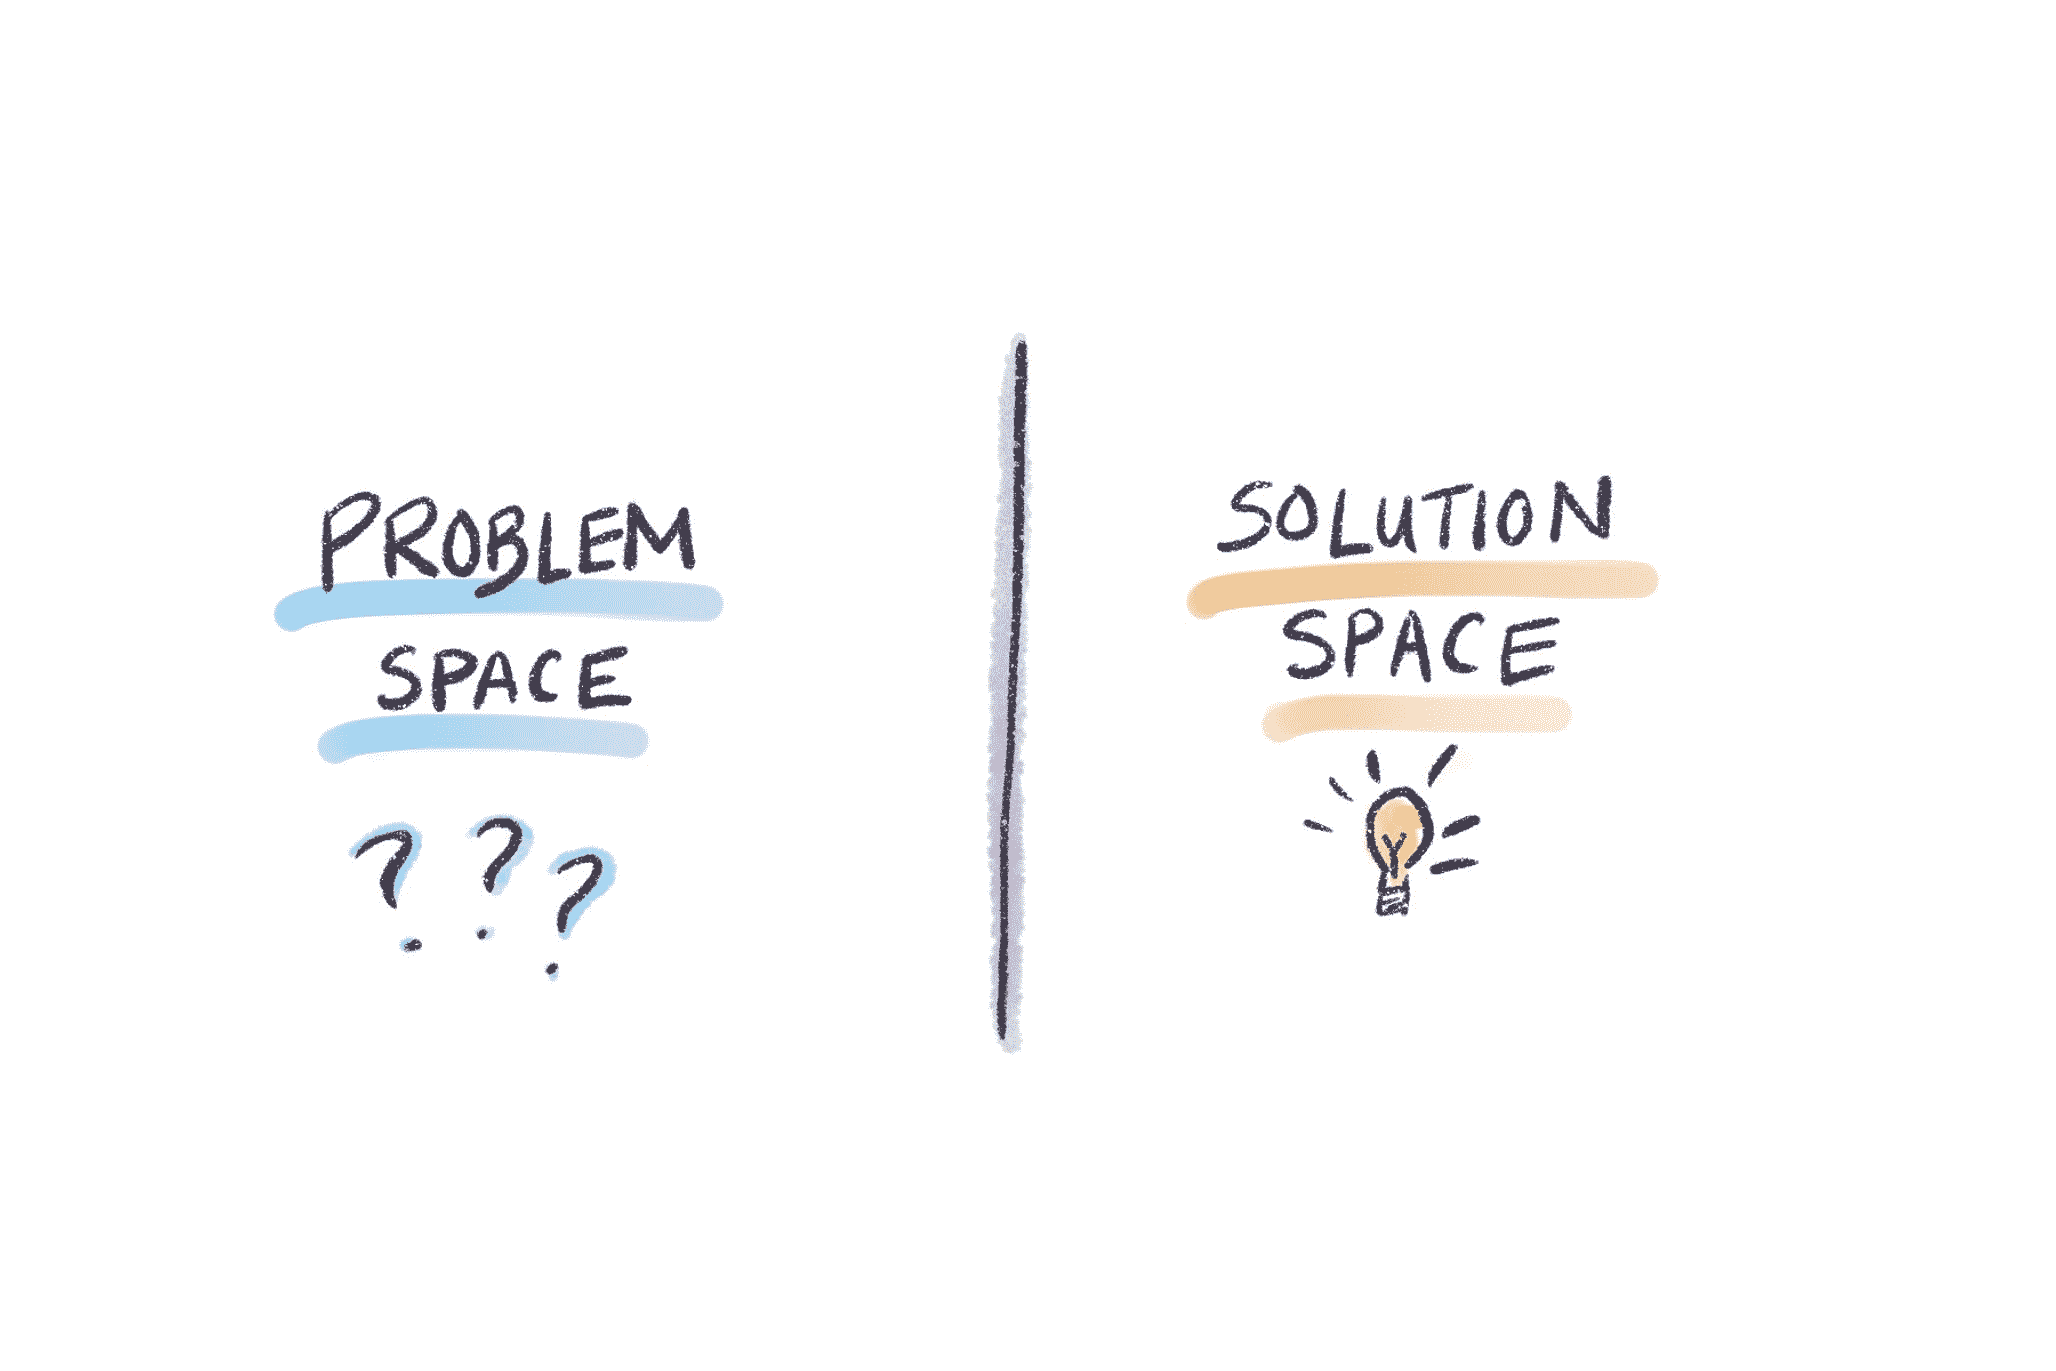 PROBLEM
SPACE
? ? ?
SOLUTION
SPACE